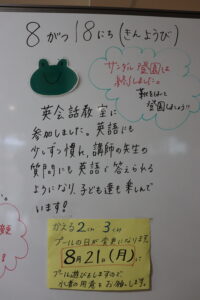 8がつ18にち(きんようび)
サンダル登園は
終了しました。
靴をはいて
登園しましょう!!
英会話教室に
参加しました。英語にも
少しずつ慣れ、講師の先生の
質問にも英語で答えられる
ようになり、子ども達も楽しんで
います!
かえる2くみ 3くみ
プールの日が変更になります。
8月21日(月)に
プール遊びをしますので
水着の用意をお願いします。